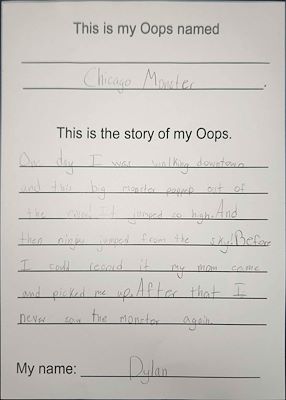 This is my Oops named
Chicago Monster.
This is the story of my Oops.
One day I was walking downtown
and this big monster popped out of
the river! It jumped so high. And
then ninjas jumped from the sky! Before
I could record it my mom came
and picked me up. After that I
never saw the monster again.
My name: Dylan